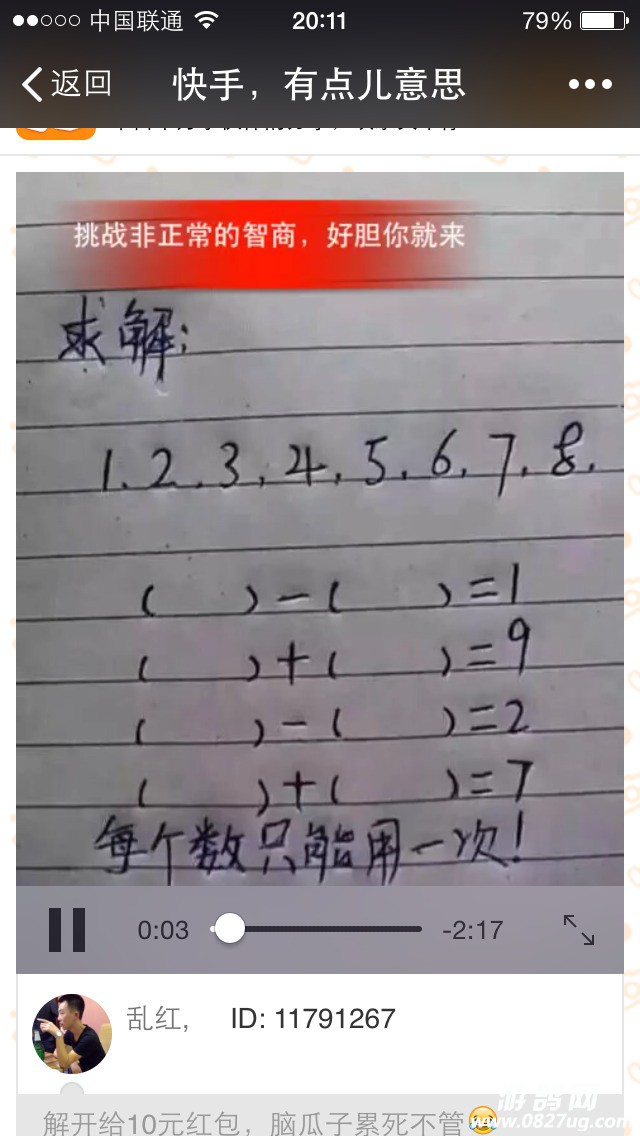 中国联通 20:11 79%
返回 快手，有点儿意思
挑战非正常的智商，好胆你就来
求解：
1.2.3.4.5.6.7.8.
( )-( )=1
( )+( )=9
( )-( )=2
( )+( )=7
每个数只能用一次！
0:03 -2:17
乱红, ID: 11791267
解开给10元红包，脑瓜子累死不管😂
游鸽网
www.0827ug.com